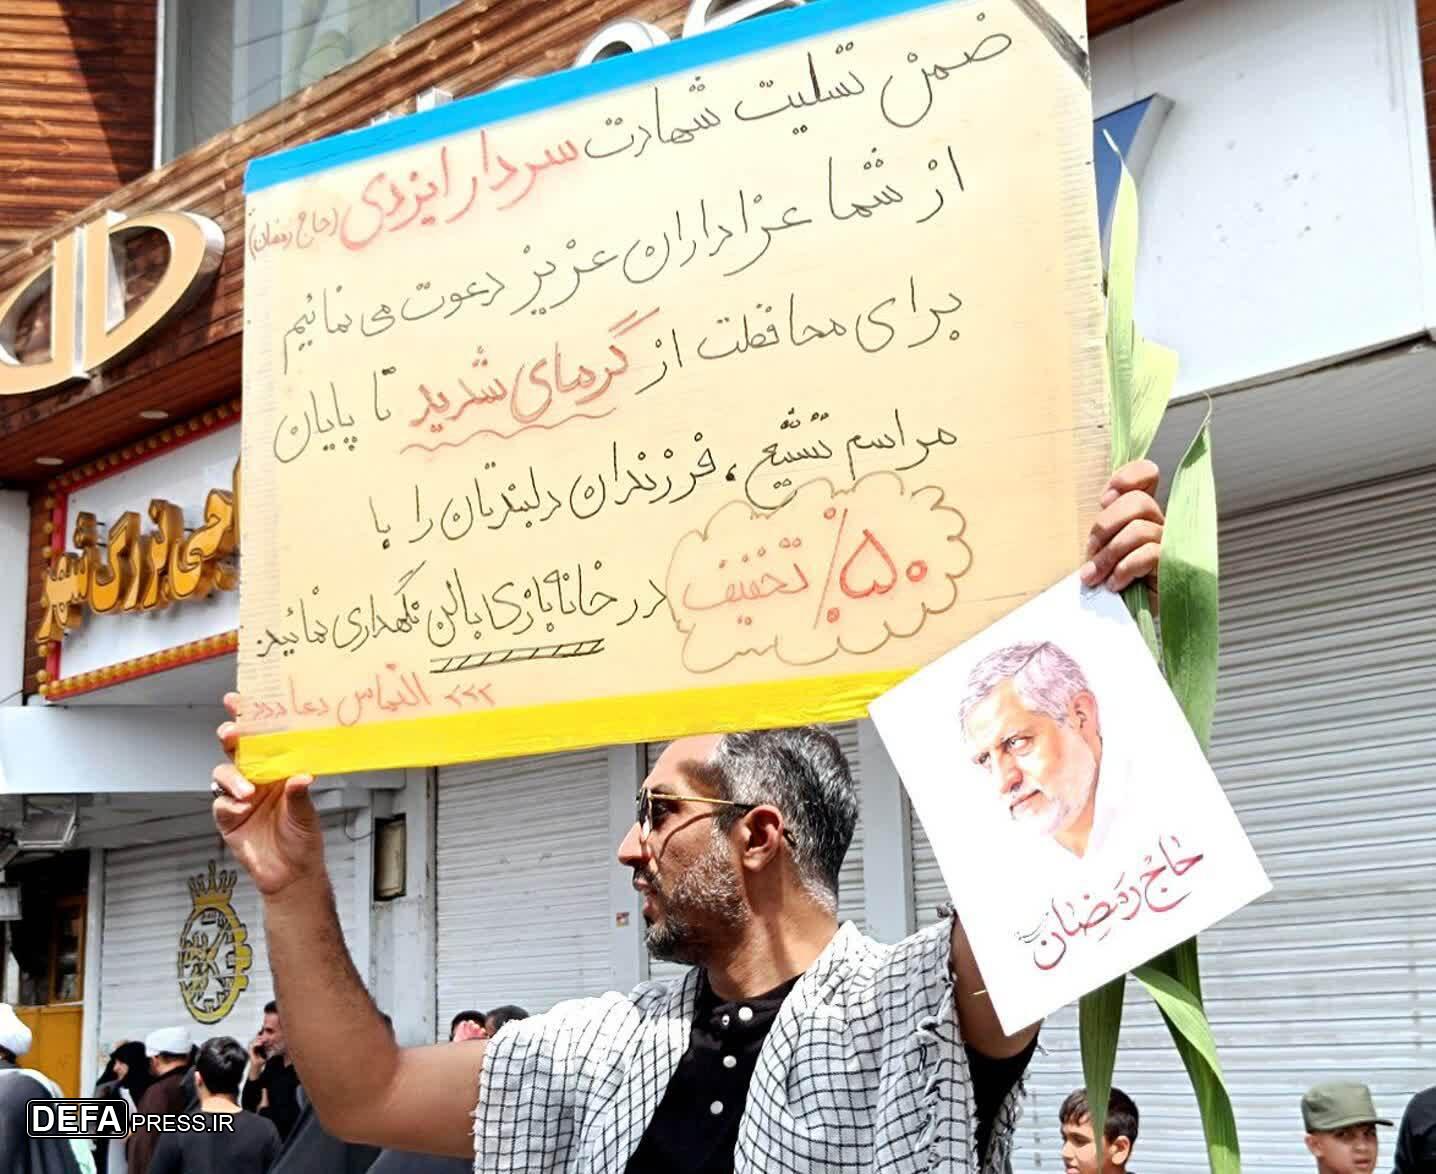 ضمن تسلیت شهادت سردار ایزدی (حاج رمضان)
از شما عزاداران عزیز دعوت می نمائیم
برای محافظت از گرمای شدید تا پایان
مراسم تشییع، فرزندان دلبندتان را با
۵۰٪ تخفیف در خانه بازی بالن نگهداری نمائید.
التماس دعا
حاج رمضان
DEFAPRESS.IR